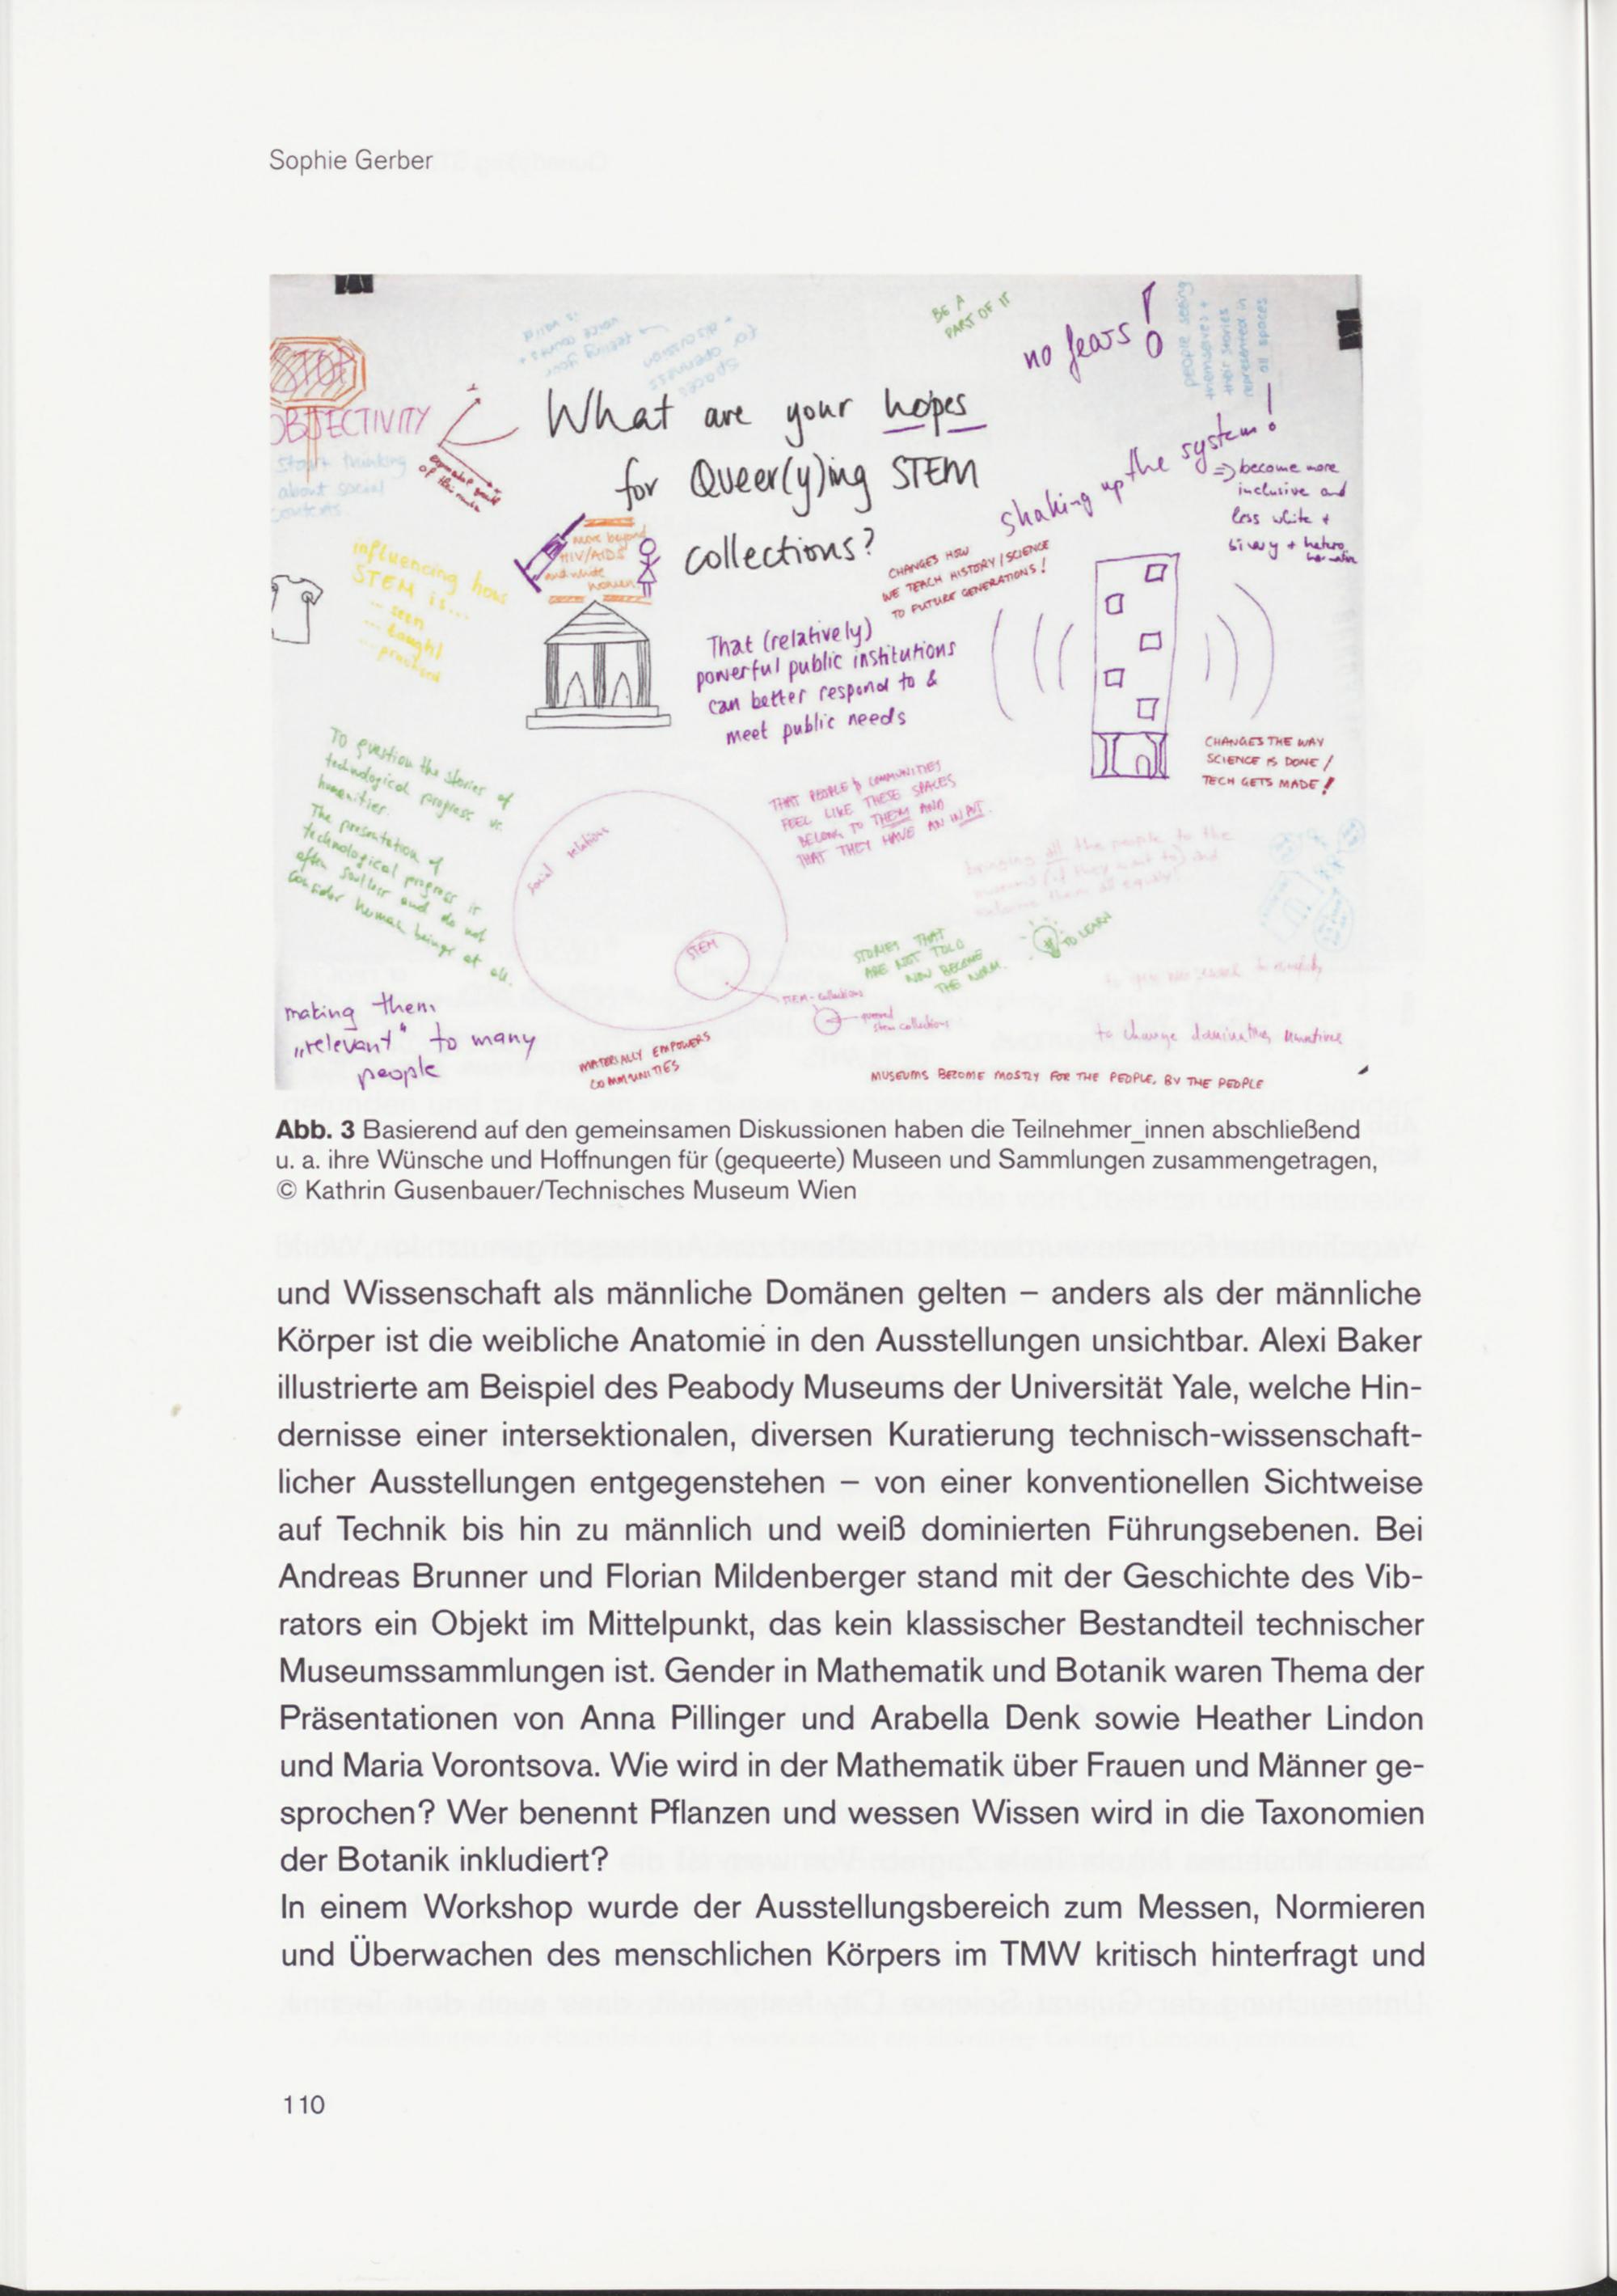 Sophie Gerber
BE A
PART OF IT
no fears!
people seeing
themselves +
their stories
represented in
all spaces
spaces
for openness
+ discussion
→ feeling your
voice counts +
is valid
STOP
OBJECTIVITY
Start thinking
about social
contexts
What are your hopes
for Queer(y)ing STEM
collections?
shaking up the system!
=> become more
inclusive and
less white +
binary + hetero
move beyond
HIV/AIDS
and white
women
influencing how
STEM is...
... seen
... taught
... practiced
CHANGES HOW
WE TEACH HISTORY/SCIENCE
TO FUTURE GENERATIONS!
That (relatively)
powerful public institutions
can better respond to &
meet public needs
CHANGES THE WAY
SCIENCE IS DONE /
TECH GETS MADE!
To question the stories of
technological progress vs.
humanities.
The presentation of
technological progress is
often soulless and do not
consider human beings at all.
THAT PEOPLE & COMMUNITIES
FEEL LIKE THESE SPACES
BELONG TO THEM AND
THAT THEY HAVE AN INPUT.
social relations
STEM
bringing all the people to the
museums (if they want to) and
welcome them all equally!
STORIES THAT
ARE NOT TOLD
NOW BECOME
THE NORM.
TO LEARN
STEM-collections
stem collections
making them
„relevant“ to many
people
MATERIALLY EMPOWERS
COMMUNITIES
to change dominating narratives
MUSEUMS BECOME MOSTLY FOR THE PEOPLE, BY THE PEOPLE
Abb. 3 Basierend auf den gemeinsamen Diskussionen haben die Teilnehmer_innen abschließend
u. a. ihre Wünsche und Hoffnungen für (gequeerte) Museen und Sammlungen zusammengetragen,
© Kathrin Gusenbauer/Technisches Museum Wien
und Wissenschaft als männliche Domänen gelten – anders als der männliche
Körper ist die weibliche Anatomie in den Ausstellungen unsichtbar. Alexi Baker
illustrierte am Beispiel des Peabody Museums der Universität Yale, welche Hin-
dernisse einer intersektionalen, diversen Kuratierung technisch-wissenschaft-
licher Ausstellungen entgegenstehen – von einer konventionellen Sichtweise
auf Technik bis hin zu männlich und weiß dominierten Führungsebenen. Bei
Andreas Brunner und Florian Mildenberger stand mit der Geschichte des Vib-
rators ein Objekt im Mittelpunkt, das kein klassischer Bestandteil technischer
Museumssammlungen ist. Gender in Mathematik und Botanik waren Thema der
Präsentationen von Anna Pillinger und Arabella Denk sowie Heather Lindon
und Maria Vorontsova. Wie wird in der Mathematik über Frauen und Männer ge-
sprochen? Wer benennt Pflanzen und wessen Wissen wird in die Taxonomien
der Botanik inkludiert?
In einem Workshop wurde der Ausstellungsbereich zum Messen, Normieren
und Überwachen des menschlichen Körpers im TMW kritisch hinterfragt und
110